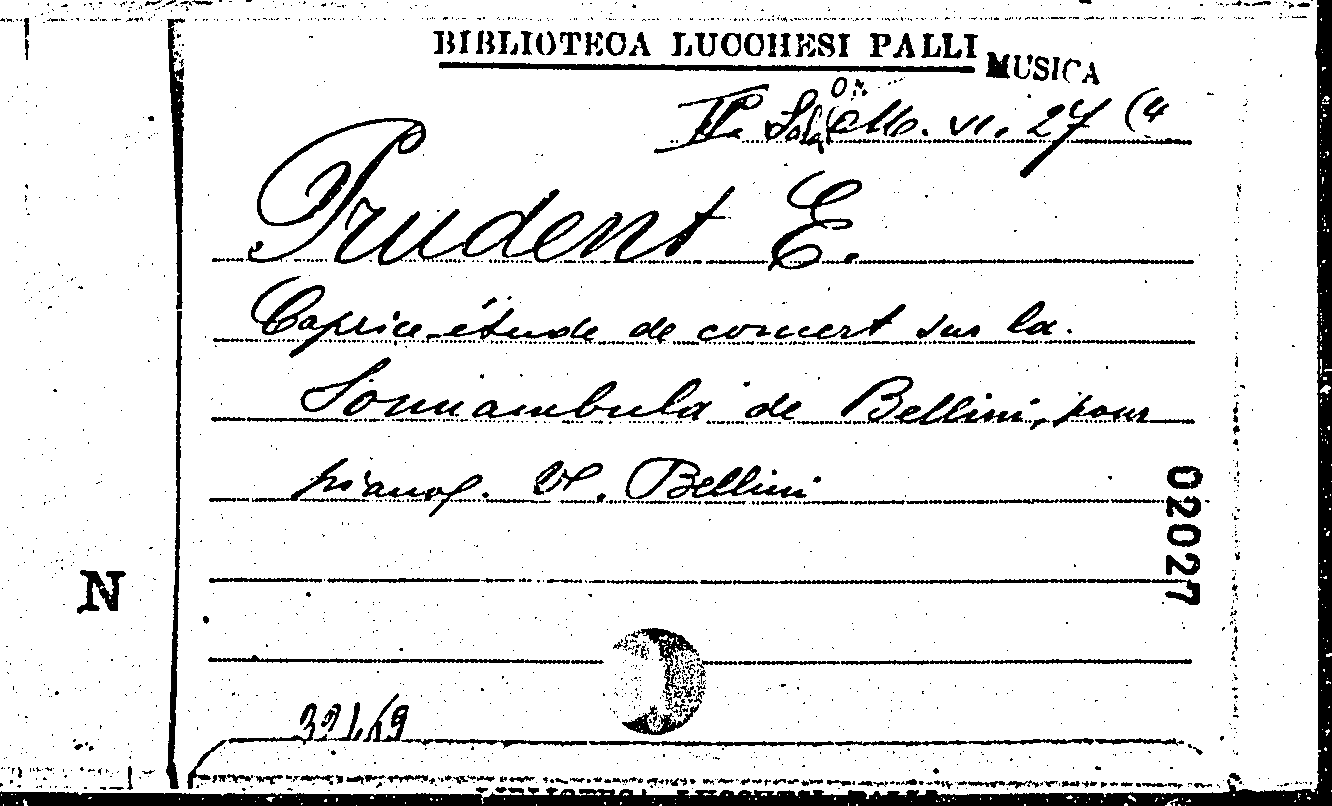 BIBLIOTECA LUCCHESI PALLI
MUSICA
IIa Sala M. VI. 27 (4
Prudent E.
Caprice-étude de concert sur la
Sonnambula de Bellini, pour
pianof. V. Bellini
02027
N